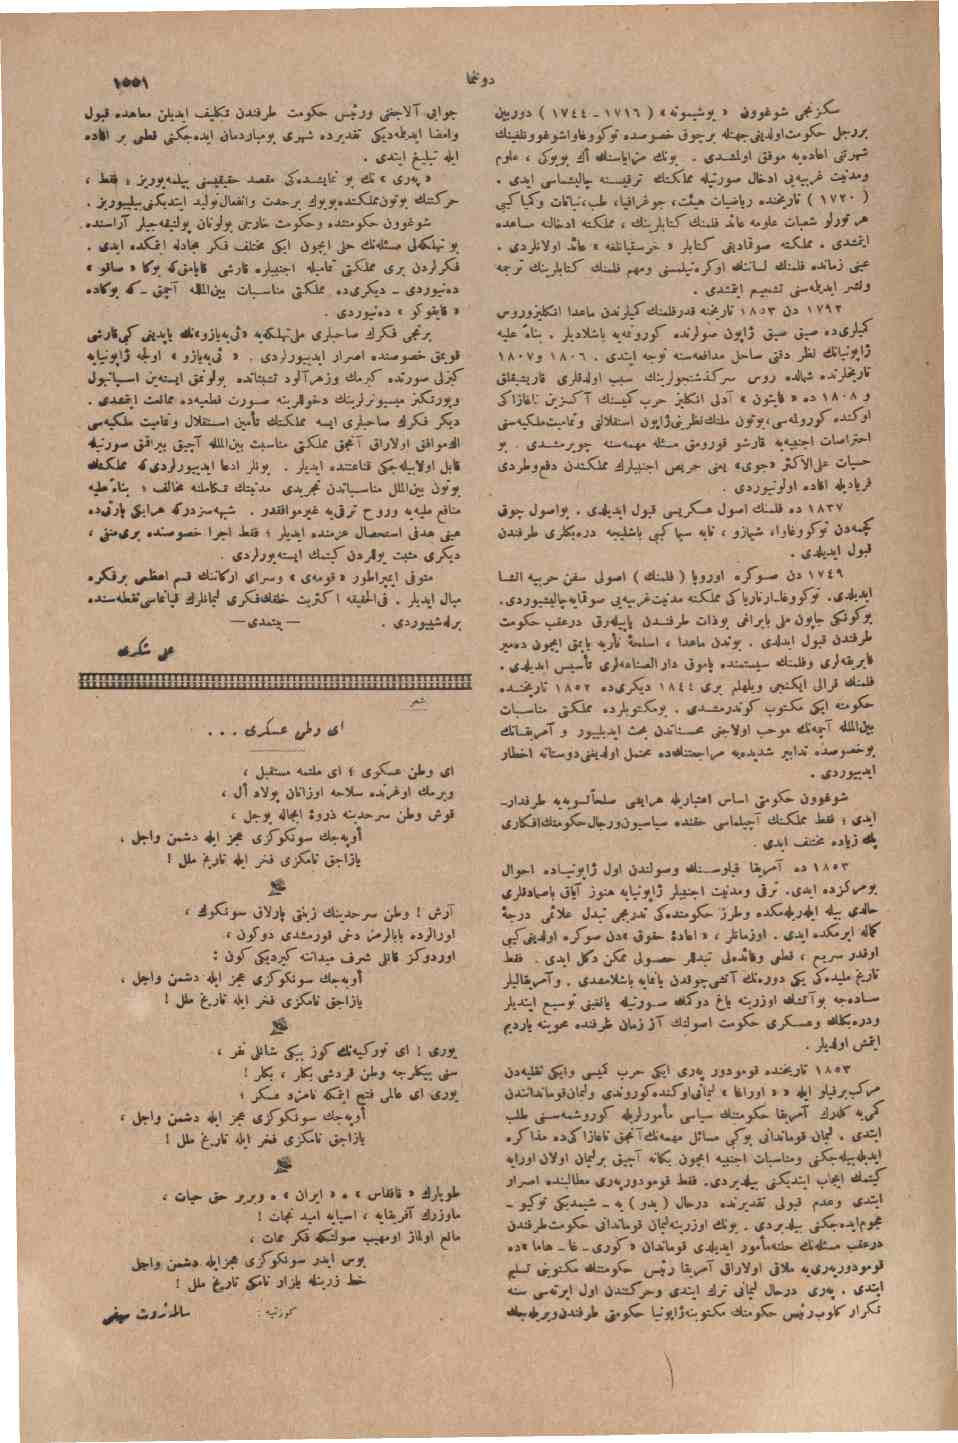 دوننما
١٥٥١
سكزنجی شوغوون « يوشيمونه » ( ١٧١٦ ـ ١٧٤٤ ) دوربين
بررجل حكومت اولديغی جهتله برچوق خصوصده توكووغاوا شوغوونلغينك
شهرتنی اعاده‌يه موفق اولمشدی . بونك منهاياسنك اك بويوكی ، علوم
ومدنيت غربيه‌يی ادخال صورتيله مملكتك ترقيسنه چاليشماسی ايدی .
( ١٧٢٠ ) تاريخنده رياضيات هيئت، جوغرافيا، طب، نباتات وكميا كبی
هر تورلو شعبات علومه عائد فلمنك كتابلرينك ، مملكته ادخالنه مساعده
ايتمشدی . مملكته صوقماديغی كتابلر « خرستيانلغه » عائد اولانلردی .
عينی زمانده فلمنك لساننك اوكره‌نيلمسنی ومهم فلمنك كتابلرينك ترجمه
ونشر ايديلمه‌سنی تشجيع ايتمشدی .
١٧٩٢ دن ١٨٥٣ تاريخنه قدر فلمنك كميلرندن ماعدا انكليز وروس
كميلری ده صيق صيق ژاپون صولرنده كورونمه‌يه باشلاديلر . بناءً عليه
ژاپونيانك نظر دقتی ساحل مدافعه‌سنه توجه ايتدی . ١٨٠٦ و ١٨٠٧
تاريخلرنده شمالده روس سركذشتجولرينك سبب اولدقلری قاريشيقلق
و ١٨٠٨ ده « فايتون » آدلی انكليز حرب كميسنك آكسزين ناغازاكی
اوكنده كورولمه‌سی، بوتون ملتك نظرينی ژاپون استقلالی وتماميت ملكيه‌سی
احتراصات اجنبيه‌يه قارشو قورومق مسئلهٔ مهمه‌سنه چويرمشدی . بو
حسيات علی الاكثر «جوی» يعنی حريص اجنبيلرك مملكتدن دفع وطردی
فرياديله افاده اولونيوردی .
١٨٣٧ ده فلمنك اصول عسكريسی قبول ايديلدی . بو اصول چوق
كچمه‌دن توكووغاوا، شيمازو ، نابه سيما كبی باشليجه دره‌بكلری طرفندن
قبول ايديلدی .
١٧٤٩ دن صوكره اوروپا ( فلمنك ) اصولی سفن حربيه انشا
ايديلدی. توكووغاـلرناريا كی مملكته مدنيت غربيه‌يی صوقمايه چاليشيوردی.
بوكونكی جاپون ملی بايراغی بوذات طرفندن ياپيله‌رق درعقب حكومت
طرفندن قبول ايدلدی . بوندن ماعدا ، اسلحهٔ ناريه يابمق ايچون دمير
فابريقه‌لری وفلمنك سيستمنده پاموق دار الصناعه‌لری تأسيس ايديلدی .
فلمنك قرالی ايكنجی ويلهلم بری ١٨٤٤ ديكری ده ١٨٥٢ تاريخنده
حكومته ايكی مكتوب كوندرمشدی . بومكتوبلرده مملكتی مناسبات
بين‌المللله آچمه‌نك موجب اولاجغی محسناتدن بحث ايديليیور و آمريقانك
بوخصوصده تدابير شديده‌يه مراجعتنك‌ده محتمل اولديغنی دوستانه اخطار
ايدييوردی .
شوغوون حكومتی اساس اعتباريله هر ايكی صلحاً تسويه‌يه طرفدار ـ
ايدی ؛ فقط مملكتك آچيلماسی حقنده سياسيون ورجال حكومتك افكاری
پك زياده مختلف ايدی .
١٨٥٣ ده آمريقا فيلوسنك وصولندن اول ژاپونياده احوال
بومركزده ايدی . ترقی ومدنيت اجنبيلر ژاپونيايه هنوز آياق باصمادقلری
حالدی بيله ايلرله‌مكده وطرز حكومتده‌كی تدريجی تبدل علائمی درجهٔ
كماله ايرمكده ايدی . اوزمانلر ، « اعادهٔ حقوق »دن صوكره اولديغی كبی
اوقدر سريع ، قطعی وفائده‌لی تبدللر حصولی ممكن دكل ايدی . فقط
تاريخ مليده‌كی يكی دوره‌نك آتشی چوقدن يانمايه باشلامشدی . وآمريقاليلر
ساده‌جه بو آتشك اوزرينه ياغ دوكمك صورتيله يانغينی توسيع ايتديلر
ودره‌بكلك وعسكری حكومت اصولنك آز زمان ظرفنده محوينه يارديم
ايتمش اولديلر .
١٨٥٣ تاريخنده قومودور په‌ری ايكی حرب كميسی وايكی نقليه‌دن
مركب بر فيلو ايله « اوراغا » ليمانی اوكنده كوروندی وليمان قوماندانندن
كمی‌يه كله‌رك آمريقا حكومتنك سياسی مأمورلريله كوروشمه‌سنی طلب
ايتدی . ليمان قوماندانی بو كبی مسائل مهمه‌نك آنجق ناغازاكی‌ده مذاكره
ايديله‌بيله‌جكنی ومناسبات اجنبيه ايچون يكانه آچيق برليمان اولان اورايه
كيتمك ايجاب ايتديكنی بيلديردی. فقط قومودور په‌ری مطالبنده اصرار
ايتدی وعدم قبولی تقديرنده درحال ( يدو ) يه ـ شيمديكی توكيو ـ
هجوم ايده‌جكنی بيلديردی . بونك اوزرينه ليمان قوماندانی حكومت طرفندن
درعقب مسئله‌نك حلنه مأمور ايديلدی قوماندان « كوری ـ غا ـ هاما »ده
قومودور په‌ری‌يه ملاقی اولارق آمريقا رئيس حكومتنك مكتوبنی تسليم
ايتدی . په‌ری درحال ليمانی ترك ايتدی وحركتندن اول ايرته‌سی سنه
تكرار كلوب رئيس حكومتك مكتوبنه ژاپونيا حكومتی طرفندن ويريله‌جك
جوابی آلاجغنی ورئيس حكومت طرفندن تكليف ايديلن معاهده قبول
وامضا ايديلمه‌ديكی تقديرده شهری بومباردمان ايده‌جكنی قطعی بر افاده
ايله تبليغ ايتدی .
« په‌ری » نك بو نمايشده‌كی مقصد حقيقيسنی بيله‌مه‌يوريز ؛ فقط ،
حركتنك بوتون مملكتده بويوك برحدت وانفعال توليد ايتديكنی بيلييوريز .
شوغوون حكومتنده وحكومت خارجی بولونان پولتيقه‌جيلر آراسنده
بو تهلكه‌لی مسئله‌نك حلی ايچون ايكی مختلف فكر مجادله ايتمكده ايدی .
فكرلردن بری مملكتی تماميله اجنبيلره قارشی قاپامق كه بوكا « ساقو »
ده‌نيوردی ـ ديكری ده مملكتی مناسبات بين‌المللله آچمق ـ كه بوكاده
« قايقوكو » ده‌نيوردی .
برنجی فكرك صاحبلری ملی تهلكه‌يه « ئی‌يه‌يازو »نك ياپديغی كبی قارشی
قويمق خصوصنده اصرار ايدييورلردی . « ئی‌يه‌يازو » اولجه ژاپونيايه
كيزلی صورتده كيرمك وزهرآلود تشبثاتده بولونمق ايسته‌ين اسپانيول
وپورتكيز ميسيونرلرينك دخوللرينه صورت قطعيه‌ده ممانعت ايتمشدی .
ديكر فكرك صاحبلری ايسه مملكتك تأمين استقلال وتماميت ملكيه‌سی
الك موافق اولارق آنجق مملكتی مناسبت بين‌المللله آچيق بيراقمق صورتيله
قابل اولابيله‌جكی قناعتنده ايديلر . بونلر ادعا ايدييورلردی كه مملكتك
بوتون بين‌الملل مناسباتدن تجريدی مدنيتك تكاملنه مخالف ؛ بناءً عليه
منافع مليه‌يه وروح ترقی‌يه غيرموافقدر . شبهه‌سزدر كه هر ايكی پارتی‌ده
عينی هدفی استحصال عزمنده ايديلر ؛ فقط اجرا خصوصنده بری منفی ،
ديكری مثبت يوللردن كيتمك ايسته‌يورلردی .
متوفی ايمپراطور « قومه‌ی » وسرای اركاننك قسم اعظمی برفكره
ميال ايديلر . فی الحقيقه اكثريت خلقك فكری ليمانلرك قپاتماسی نقطه‌سنده
برله‌شييوردی . — بيتمدی —
علی شكری
شعر
ای وطن عسكری . . .
ای وطن عسكری ؛ ای ملتمه مستقبل ،
ويرمك اوغرنده سلاحه اوزانان پولاد أل ،
قوش وطن سرحدينه ذروهٔ ايجاله يوجل ،
أوپه‌جك سونكوكزی عجز ايله دشمن واجل ،
يازاجق نامكزی فخر ايله تاريخ ملل !
آرش ! وطن سرحدينك زينتی پارلاق سونكوك ،
اورالرده بابالرمز دخی قورمشدی دوكون ،
اوردوكز قانلی شرف ميداننه كيرديكی كون :
أوپه‌جك سونكوكزی عجز ايله دشمن واجل ،
يازاجق نامكزی فخر ايله تاريخ ملل !
يوری ! ای توركيه‌نك كوز ببكی شانلی نفر ،
سنی بيكلرجه وطن قردشی بكلر ، بكلر !
يوری ای عالمی فتح ايتمكه نامزد عسكر ؛
أوپه‌جك سونكوكزی عجز ايله دشمن واجل ،
يازاجق نامكزی فخر ايله تاريخ ملل !
طوپلرك « قافقاس » ه « ايران » ه ويرير حق حيات ،
ماوزرك آفريقايه ، اسيايه اميد نجات !
مانع اولماز اومهيب صولتكه فكر ممات ،
بوس ايدر سونكوكزی عجز ايله دشمن واجل
خط زرينله يازار نامكی تاريخ ملل !
كوزتپه : صالد ثروت سيفی